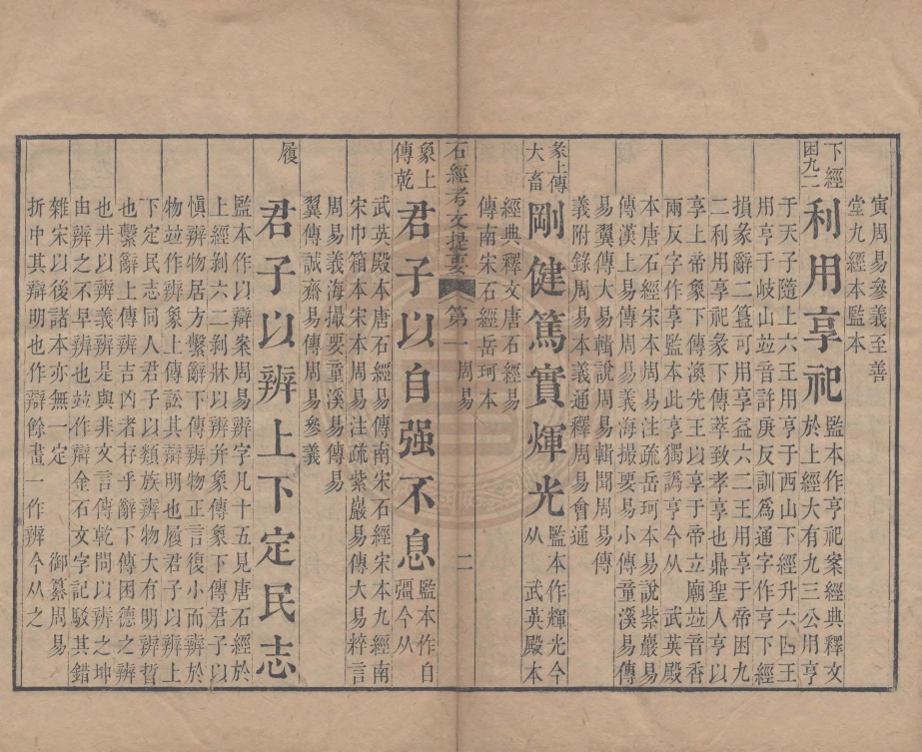 寅周易參義至善
堂九經本監本
下經
困九二
利用享祀
監本作亨祀案經典釋文
於上經大有九三公用亨
于天子隨上六王用亨于西山下經升六四王
用亨于岐山竝音許庚反訓爲通字作亨下經
損彖辭二簋可用享益六二王用享于帝困九
二利用享祀彖下傳萃致孝享也鼎聖人亨以
享上帝象下傳渙先王以享于帝立廟竝音香
兩反字作享監本此享獨譌亨今从 武英殿
本唐石經宋本周易注疏岳珂本易說紫巖易
傳漢上易傳周易義海撮要易小傳童溪易傳
易翼傳大易輯說周易輯聞周易傳
義附錄周易本義通釋周易會通
彖上傳
大畜
剛健篤實輝光
監本作煇光今
从 武英殿本
經典釋文唐石經易
傳南宋石經岳珂本
石經考文提要 第一 周易 二
象上
傳乾
君子以自强不息
監本作自
彊今从
武英殿本唐石經易傳南宋石經宋本九經南
宋巾箱本宋本周易注疏紫巖易傳大易粹言
周易義海撮要童溪易傳易
翼傳誠齋易傳周易參義
履
君子以辨上下定民志
監本作以辯案周易辨字凡十五見唐石經於
上經剝六二剝牀以辨并象傳象下傳君子以
愼辨物居方繫辭下傳辨物正言復小而辨於
物竝作辨象上傳訟其辯明也履君子以辨上
下定民志同人君子以類族辨物大有明辨晢
也繫辭上傳辨吉凶者存乎辭下傳困德之辨
也井以辨義辨是與非文言傳乾問以辨之坤
由辨之不早辨也竝作辯金石文字記駁其錯
雜宋以後諸本亦無一定 御纂周易
折中其辯明也作辯餘畫一作辨今从之